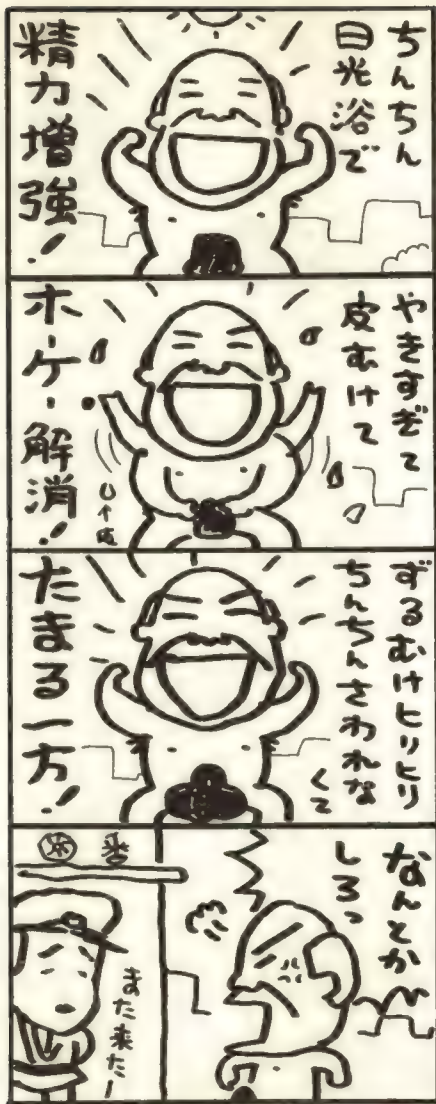 ちんちん
日光浴で
精力増強!
やきすぎて
皮むけて
ホーケー解消!
ずるむけヒリヒリ
ちんちんさわれな
くて
たまる一方!
なんとか
しろっ
交番
また来たー